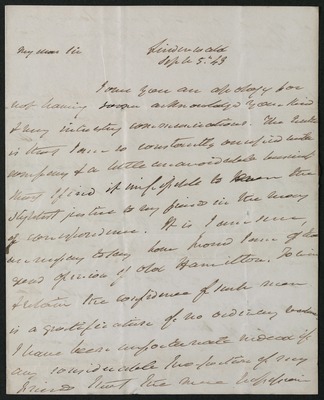 My dear Sir Lindenwald
Sept 5th 43
I owe you an apology for
not having sooner acknowledged your kind
& very interesting communications. The truth
is that I am so constantly occupied with
company & a little unavoidable business
that I find it impossible to do the
slightest justice to my friends in the way
of correspondence. It is I am sure,
unnecessary to say how proud I am of the
good opinion of old Hamilton. To win
& retain the confidence of such men
is a gratification of no ordinary
I have been unfortunate indeed if
any considerable proportion of my
friends that the mere expression